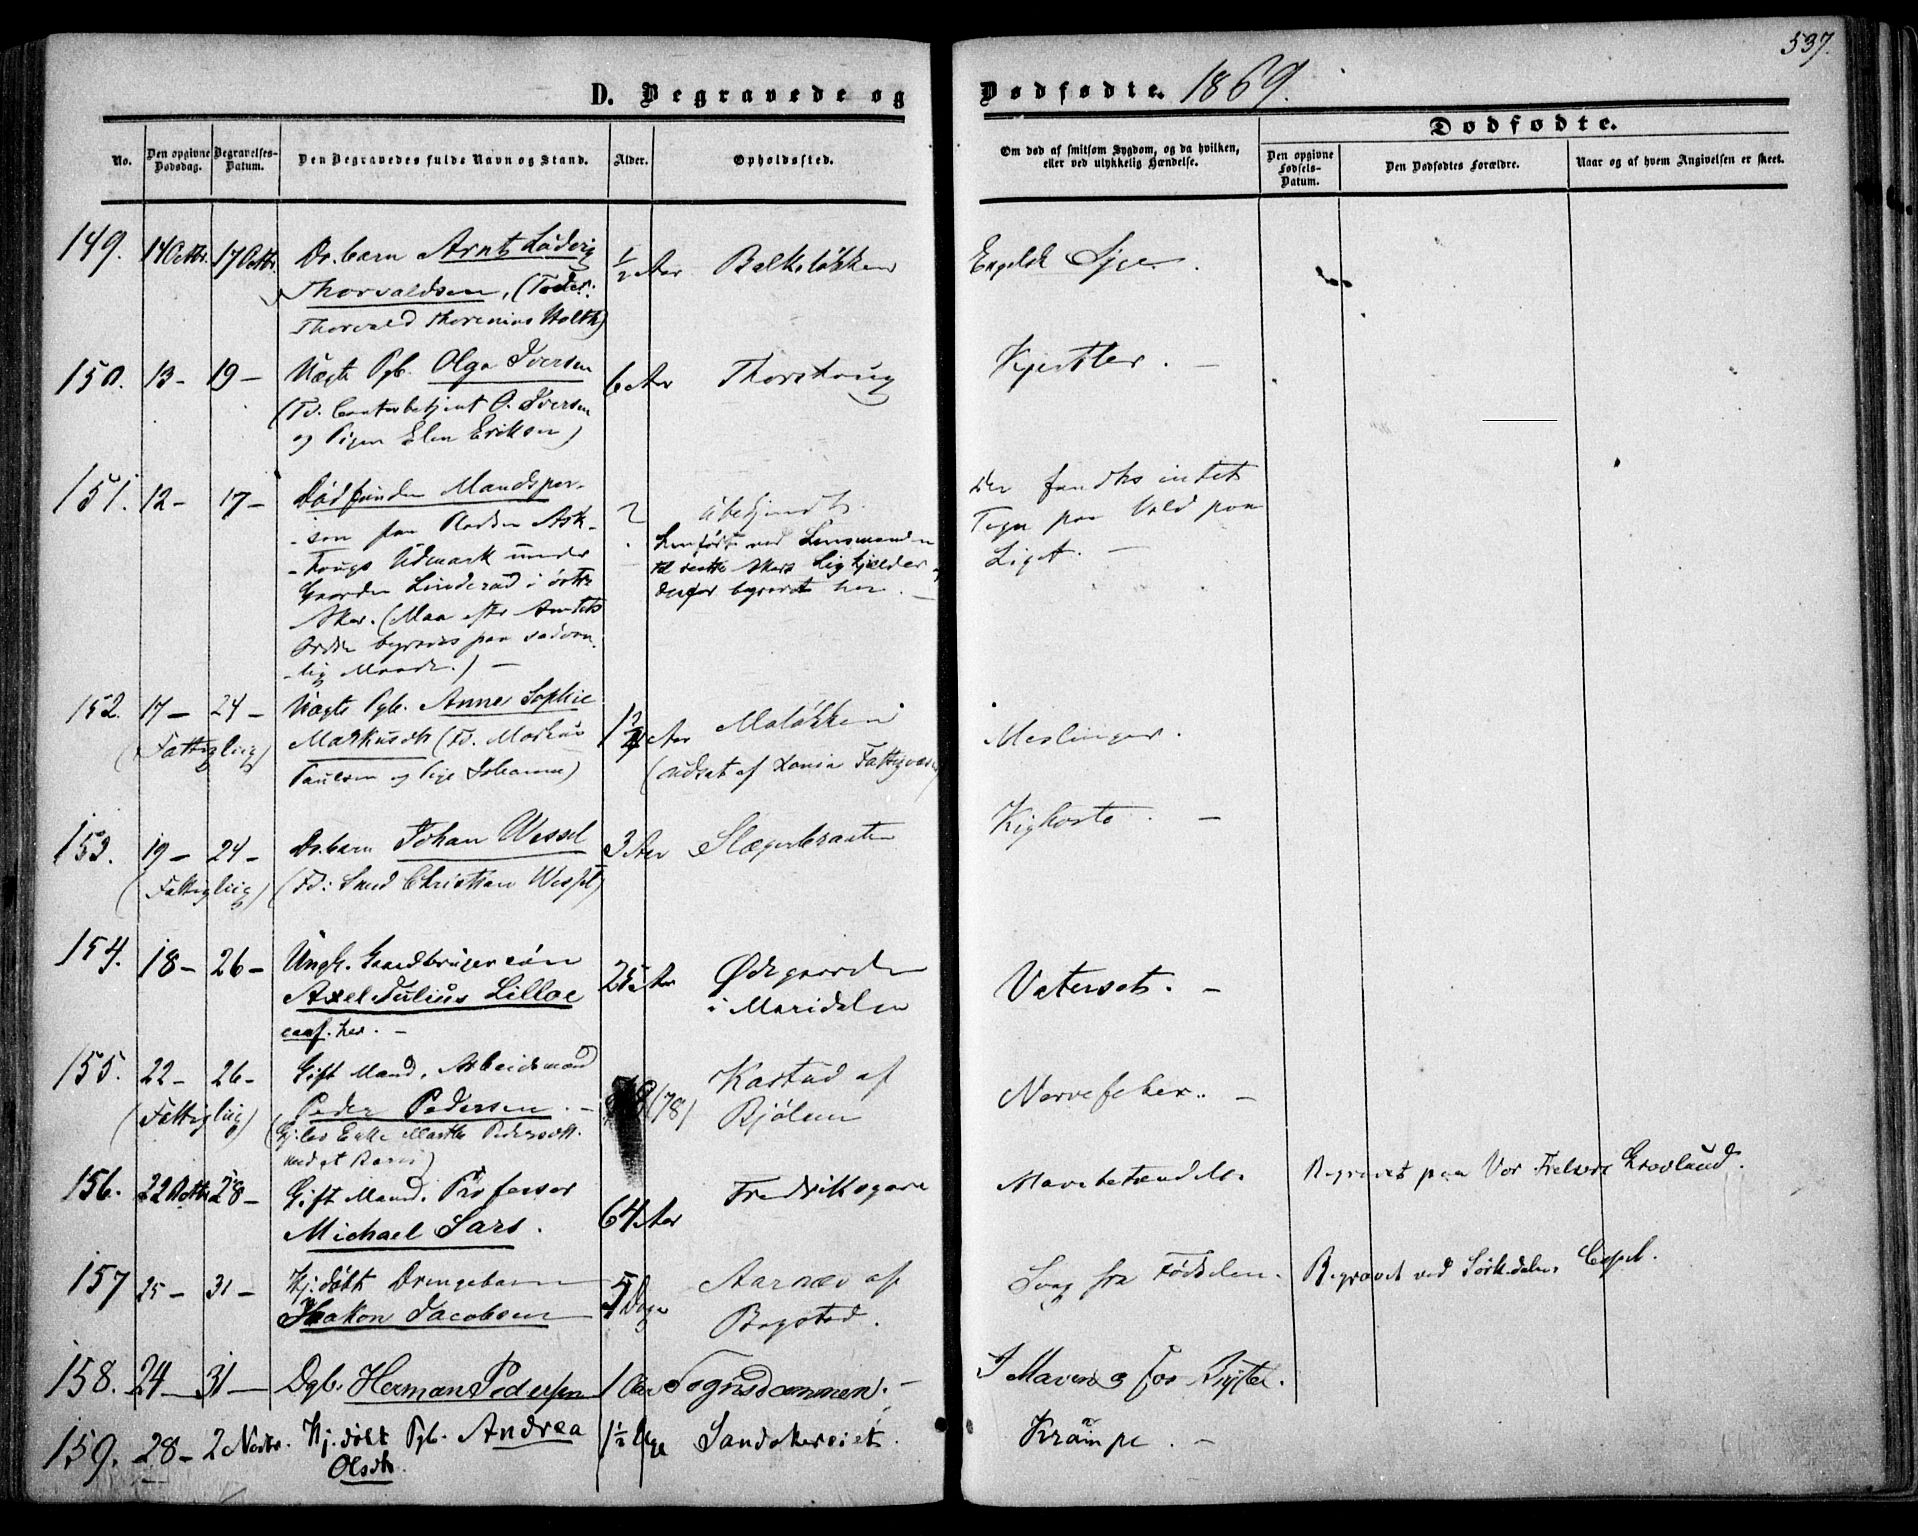 537.
D. Begravede og Dødfødte. 1869.
No.
Den opgivne Dødsdag.
Begravelses-Datum.
Den Begravedes fulde Navn og Stand.
Alder.
Opholdssted.
Om død af smitsom Sygdom, og da hvilken, eller ved ulykkelig Hændelse.
Dødfødte.
Den opgivne Fødsels-Datum.
Den Dødfødtes Forældre.
Naar og af hvem Angivelsen er skeet.
149. 14 Octbr. 17 Octbr. Drbarn Arnt Lüdvig ½ Aar Engelsk Syge.
Thorvaldsen, (Fader:
Thorvald Thorenius Holth)
150. 13 - 19 - Uægte Pgb. Olga Iversen 6 Aar Thorshoug Kjertler. -
(Fd. Contorbetjent O. Iversen
og Pigen Elen Eriksen)
151. 12 - 17 - Dødfunden Mandsper- ? Ubekjendt. Der fandtes intet
-son paa Pladsen Ask- Tegn paa Vold paa
-hougs Udmark under Liget. -
Gaarden Linderud i østre
Aker. (Maa efter Amtets
Ordre begraves paa sædvan-
-lig Maade.) -
Henført ved Lensmanden
til vestre Akers Ligkjælder og
derfor begravet her. -
152. 17 - 24 - Uægte Pgb. Anne Sophie Maløkken Meslinger.
(Fattiglig) Markusdtr (Fd. Markus
Paulsen og Pige Johanne) (udsat af Fattigvæsen)
153. 19 - 24 - Drbarn Johan Wessel 3 Aar Slagerbraaten Kighoste. -
(Fattiglig) (Fd: Smed Christian Wessel)
154. 18 - 26 - Ungk. Gaardbrugersøn 25 Aar Ødegaarden Vatersot. -
Axel Julius Lilloe i Maridalen
conf. her. -
155. 22 - 26 - Gift Mand, Arbeidsmand (78) Kastad af Nervefeber. -
(Fattiglig) Peder Pedersen. - Bjølsen
(Gj. lev Enke Marthe Pedersdtr.
156. 22 Octbr 28 - Gift Mand, Professor 64 Aar Fredriksgave Mavebetændelse. Begravet paa Vor Frelsers Gravlund.
Michael Sars.
157 25 - 31 - Hj. døbt Drengebarn 5 Dage Aarnæs af Svag fra Fødselen. Begravet ved Sørkedalens Capel.
Haakon Jacobsen Bogstad.
158. 24 - 31 - Dgb. Herman Pedersen 1 Aar Sognsdammen. - I Maven og for Bryste.
159. 28 - 2 Novbr. Hj. døbt Pgb. Andrea 1½ Uge Sandakerveiet. Krampe. -
Olsdtr.